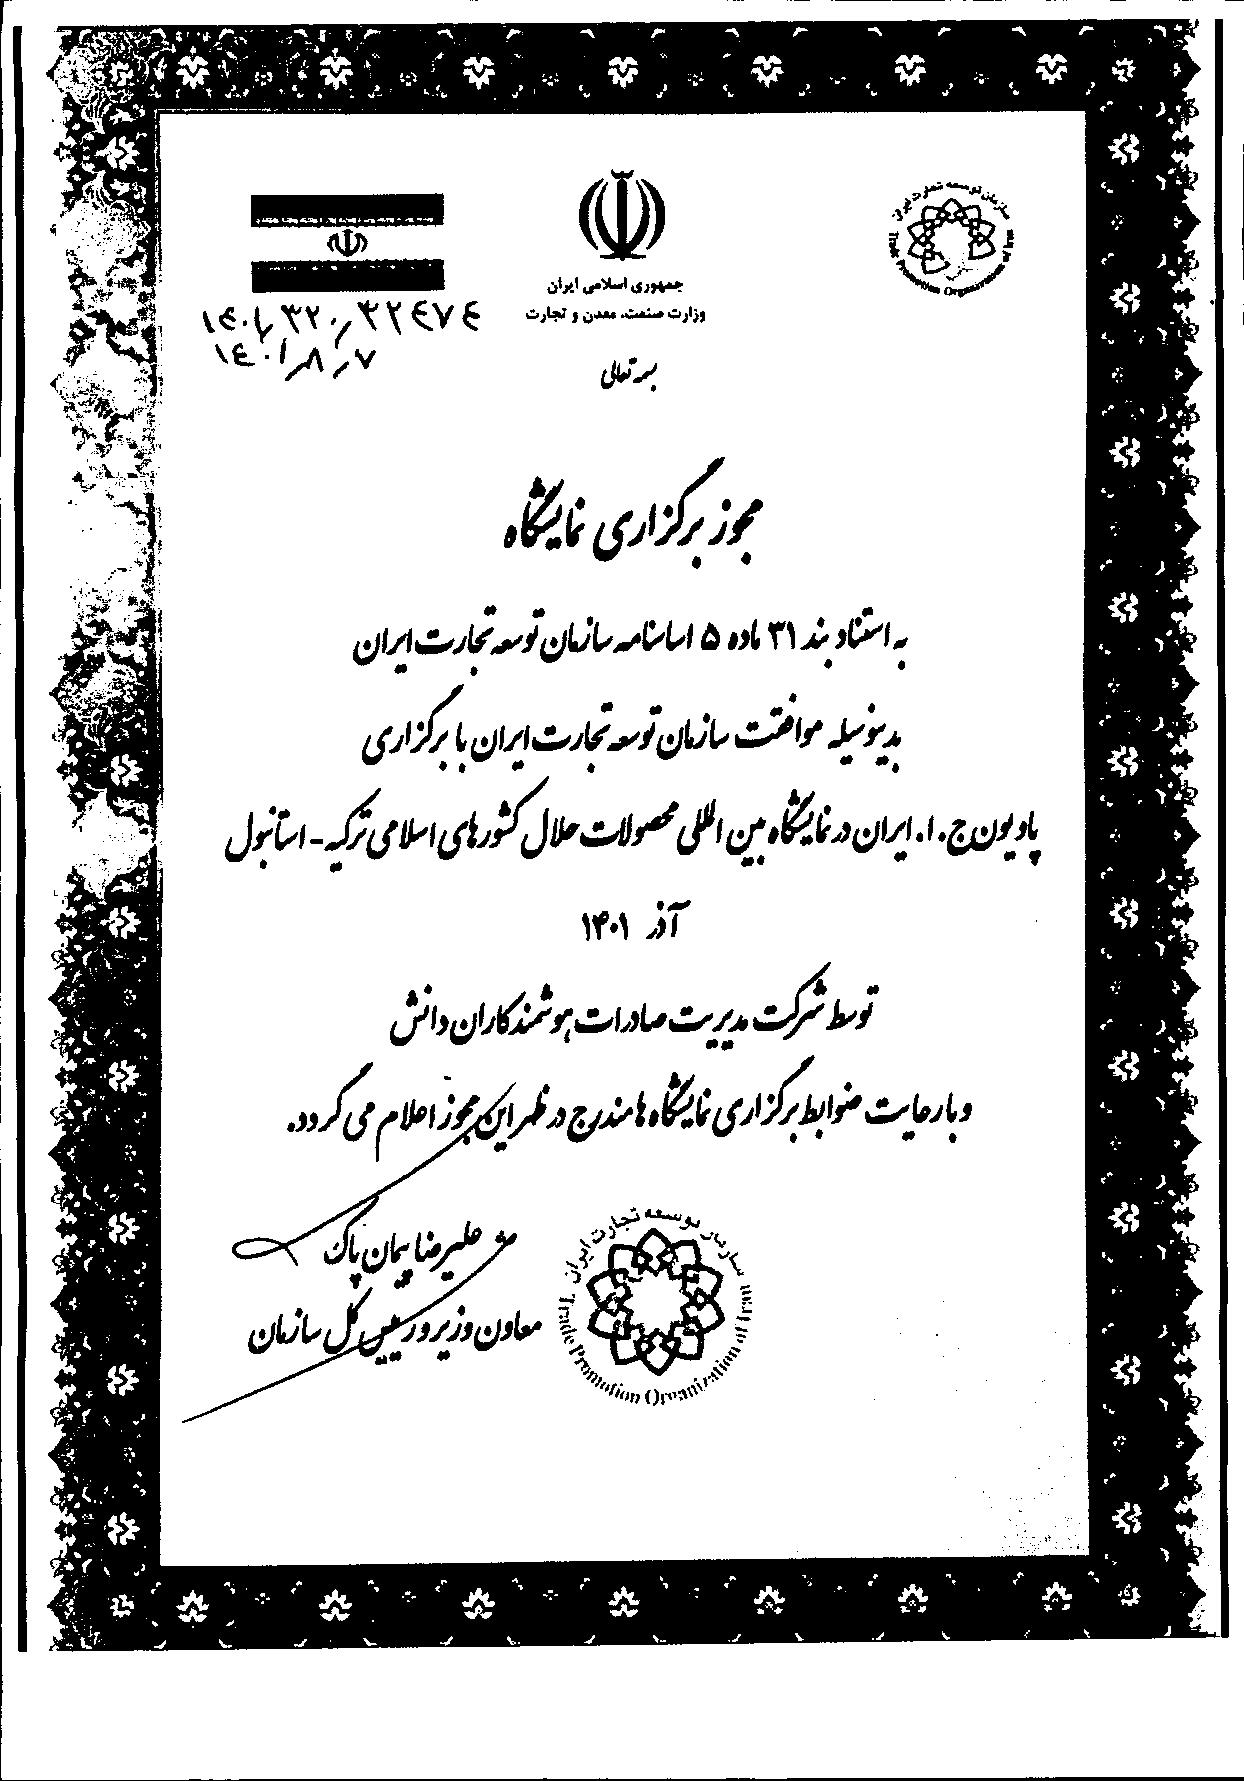 سازمان توسعه تجارت ایران
Trade Promotion Organization of Iran
جمهوری اسلامی ایران
وزارت صنعت، معدن و تجارت
۱۴۰۱/۳۲۰/۳۲۴۷۴
۱۴۰۱/۸/۷
بسمه تعالی
مجوز برگزاری نمایشگاه
به استناد بند ۳۱ ماده ۵ اساسنامه سازمان توسعه تجارت ایران
بدینوسیله موافقت سازمان توسعه تجارت ایران با برگزاری
پاویون ج.ا.ایران در نمایشگاه بین المللی محصولات حلال کشورهای اسلامی ترکیه - استانبول
آذر ۱۴۰۱
توسط شرکت مدیریت صادرات هوشمندکاران دانش
و با رعایت ضوابط برگزاری نمایشگاه ها مندرج در ظهر این مجوز اعلام می گردد.
علیرضا پیمان پاک
معاون وزیر و رییس کل سازمان
سازمان توسعه تجارت ایران
Trade Promotion Organization of Iran